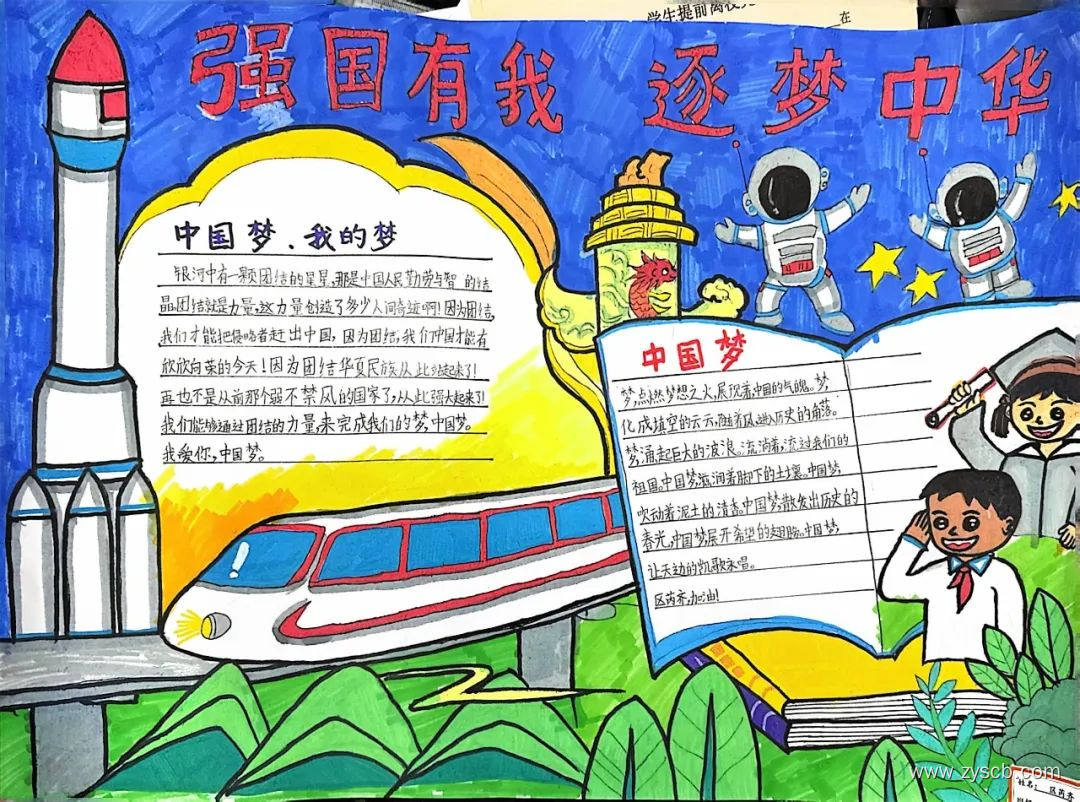 学生提前离校
在
强国有我 逐梦中华
中国梦、我的梦
银河中有一颗团结的星星,那是中国人民勤劳与智 的结
晶,团结就是力量,这力量创造了多少人间奇迹啊!因为团结,
我们才能把侵略者赶出中国,因为团结,我们中国才能有
欣欣向荣的今天!因为团结华夏民族从此站起来了!
再也不是从前那个弱不禁风的国家了,从此强大起来了!
我们能够通过团结的力量,来完成我们的梦,中国梦。
我爱你,中国梦。
中国梦
梦,点燃梦想之火,展现着中国的气魄。梦,
化成填空的云云,随着风,进入历史的角落。
梦,涌起巨大的波浪。流淌着,流过我们的
祖国。中国梦,滋润着脚下的土壤。中国梦,
吹动着泥土的清香。中国梦,散发出历史的
春光,中国梦,展开希望的翅膀。中国梦,
让天边的凯歌永唱。
区芮齐,加油!
www.zyscb.com
姓名: 区芮齐